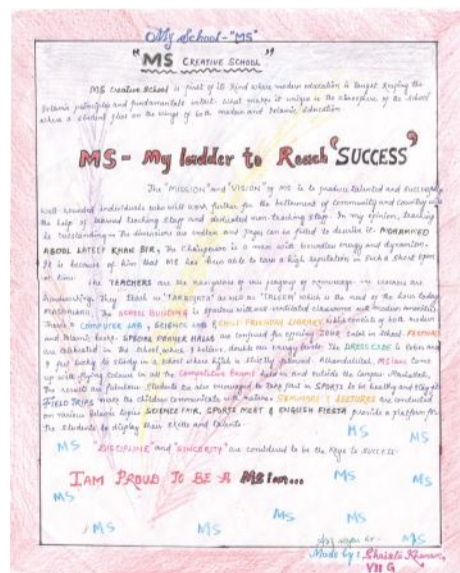 My School - "MS"
"MS CREATIVE SCHOOL"
MS Creative School is first of its kind where modern education is taught keeping the
Islamic principles and fundamentals intact. What makes it unique is the atmosphere of the School
where a student flies on the wings of both modern and Islamic Education
MS - My ladder to Reach 'SUCCESS'
The "MISSION" and "VISION" of MS is to produce talented and successful
well rounded individuals who will work further for the betterment of community and country with
the help of learned teaching staff and dedicated non-teaching staff. In my opinion, teaching
is outstanding. The dimensions are endless and pages can be filled to describe it. MOHAMMED
ABDUL LATEEF KHAN SIR, the Chairperson is a man with boundless energy and dynamism.
It is because of him that MS has been able to earn a high reputation in such a short span
of time.
The TEACHERS are the navigators of this journey of knowledge. The teachers are
hardworking. They teach us "TARBIYATA" as well as "TALEEM" which is the need of the hour today
MASHALLAH. The SCHOOL BUILDING is spacious with ventilated classrooms and modern amenities
There's COMPUTER LAB, SCIENCE LAB & CHILD FRIENDLY LIBRARY which consists of both modern
and Islamic books. SPECIAL PRAYER HALLS are confined for offering ZOHR Salah in School.
are celebrated in the School which I believe, double our energy levels. The DRESS CODE is
I feel lucky to study in a School where hijab is strictly followed. Alhamdulillah, MSians come
up with flying colours in all the Competitive Exams held in and outside the Campus. Mashallah,
The results are fabulous. Students are also encouraged to take part in SPORTS to be healthy and
FIELD TRIPS make the children communicate with nature. SEMINARS & LECTURES are conducted
on various Islamic topics. SCIENCE FAIR, SPORTS MEET & ENGLISH FIESTA provide a platform for
the students to display their skills and talents.
MS MS
MS "DISCIPLINE" and "SINCERITY" are considered to be the Keys to SUCCESS.
I AM PROUD TO BE A MSian... MS MS
MS
MS MS
MS MS MS
Made by: Shaista Khanam,
VII G